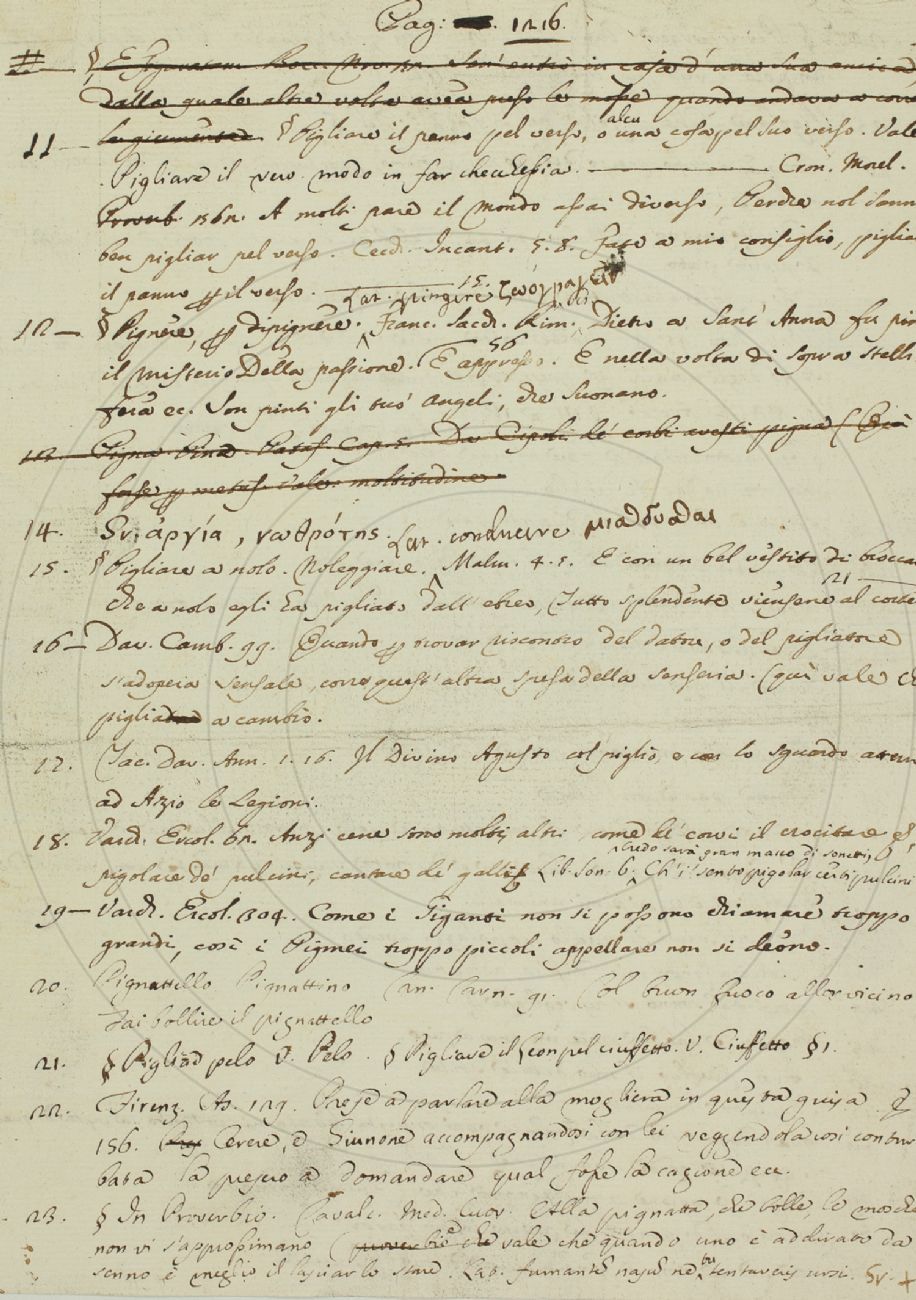 Pag: 1216.
dalla quale altre volte avea preso le mosse quando andava a
11 — § Pigliare il panno pel verso, o alcuna cosa pel suo verso. Vale
Pigliare il vero modo in far checchesia. — Cron. Morel.
A molti pare il mondo assai diverso, Perchè nol sann
ben pigliar pel verso. Cecch. Incant. 5. 8. Fate a mio consiglio, piglia
il panno p il verso. — Lat. pingere
12 — § Pignere, p dipignere. Franc. Sacch. Rim. Dietro a Sant' Anna fu pin
il misterio Della passione. E appresso 56. E nella volta di sopra stella
ec. Son pinti gli suo' Angeli, che suonano.
13. Pigna. Pataff. Cap. 5. De' corbi avesti pigna (Qui
forse p metaf. vale moltitudine
14. ἀργία, νωθρότης. Lat. conducere μισθοῦσθαι
15. § Pigliare a nolo. Noleggiare. Malm. 4. 5. E con un bel vestito di brocca
Che a nolo egli ha pigliato dall' ebreo, Tutto splendente al corte
16 — Dav. Camb. 99. Quando p trovar riscontro del datore, o del pigliatore
s'adopera sensale, corre quest' altra spesa della senseria. (qui vale
a cambio.
17. Tac. Dav. Ann. 1. 16. Il Divino Agusto col piglio, e con lo sguardo atterrì
ad Azio le Legioni.
18. Varch. Ercol. 62. Anzi cene sono molti altri, come de' corvi il crocitare
pigolare de' pulcini, cantare de' galli Lib. Son. 6. Credo sarà gran macco di sonetti, Ch' i' sento pigolar certi pulcini
19 — Varch. Ercol. 304. Come i Giganti non si possono chiamare troppo
grandi, così i Pigmei troppo piccoli appellare non si deono.
20. Pignattello Pignattino Can. Carn. 91. Col buon fuoco allor vicino
Fai bollire il pignattello
21. § Pigliar pelo V. Pelo. § Pigliare il Leon pel ciuffetto. V. Ciuffetto § 1.
22. Firenz. As. 129. Prese a parlare alla mogliera in questa guisa
156. Cerere, e Giunone accompagnandosi con lei veggendola così contur
bata la presero a domandare qual fosse la cagione ec.
23. § In Proverbio. Cavalc. Med. Cuor. Alla pignatta, che bolle, le mosche
non vi s'approssimano (proverbio che vale che quando uno è adirato da
senno è meglio il lasciarlo stare. Lat. fumantem nasum ne tentaveris ursi. Gr. +